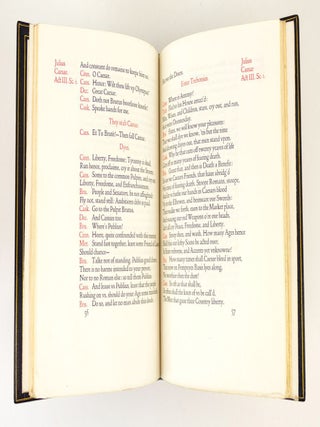 Julius
Caesar
Act III. Sc. 1.
And constant do remaine to keepe him so.
Cinn. O Caesar.
Caes. Hence: Wilt thou lift up Olympus?
Dec. Great Caesar.
Caes. Doth not Brutus bootlesse kneele?
Cask. Speake hands for me.
They stab Caesar.
Caes. Et Tu Brutè?—Then fall Caesar.
Dyes.
Cinn. Liberty, Freedome; Tyranny is dead,
Run hence, proclaime, cry it about the Streets.
Cass. Some to the common Pulpits, and cry out
Liberty, Freedome, and Enfranchisement.
Bru. People and Senators, be not affrighted:
Fly not, stand still: Ambitions debt is paid.
Cask. Go to the Pulpit Brutus.
Dec. And Cassius too.
Bru. Where's Publius?
Cinn. Heere, quite confounded with this mutiny.
Met. Stand fast together, least some Friend of
Should chance—
Bru. Talke not of standing. Publius good cheere,
There is no harme intended to your person,
Nor to no Roman else: so tell them Publius.
Cass. And leave us Publius, least that the people
Rushing on us, should do your Age some
Bru. Do so, and let no man abide this deede,
56
the Doers.
Enter Trebonius.
Julius
Caesar
Act III. Sc. 1.
Cass. Where is Antony?
Treb. Fled to his House amaz'd:
Men, Wives, and Children, stare, cry out, and run,
As it were Doomesday.
Bru. Fates, we will know your pleasures:
That we shall dye we know, 'tis but the time
And drawing dayes out, that men stand upon.
Cask. Why he that cuts off twenty yeares of life
Cuts off so many yeares of fearing death.
Bru. Grant that, and then is Death a Benefit:
So are we Caesars Friends, that have abridg'd
His time of fearing death. Stoope Romans, stoope,
And let us bathe our hands in Caesars blood
Up to the Elbowes, and besmeare our Swords:
Then walke we forth, even to the Market place,
And waving our red Weapons o're our heads,
Let's all cry Peace, Freedome, and Liberty.
Cass. Stoop then, and wash. How many Ages hence
Shall this our lofty Scene be acted over,
In State unborne, and Accents yet unknowne?
Bru. How many times shall Caesar bleed in sport,
That now on Pompeyes Basis lyes along,
No worthier then the dust?
Cass. So oft as that shall be,
So often shall the knot of us be call'd,
The Men that gave their Country liberty.
57